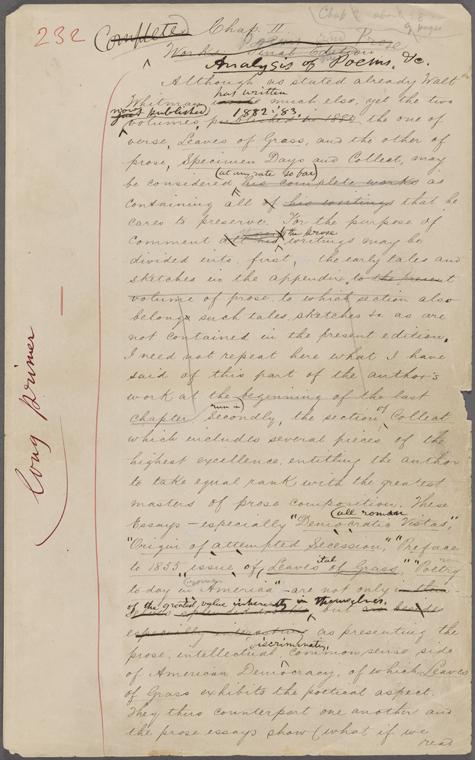 232 Completed Chap. II
Works, Final Edition Prose
Analysis of Poems, &c.
Although as stated already Walt
has written
Whitman much else, yet the two
now published 1882-'83,
volumes, published in 1882 the one of
verse, Leaves of Grass, and the other of
prose, Specimen Days and Collect, may
(at any rate so far)
be considered his complete works as
containing all of his writings that he
cares to preserve. For the purpose of
the prose
comment all his writings may be
divided into, first, the early tales and
sketches in the appendix to the present
volume of prose, to which section also
belong such tales, sketches &c as are
not contained in the present edition.
I need not repeat here what I have
said of this part of the author's
work at the beginning of the last
run in
chapter. Secondly, the section of Collect
which includes several pieces of the
highest excellence, entitling the author
to take equal rank with the greatest
masters of prose composition. These
(all roman
Essays – especially "Democratic Vistas,"
"Origin of attempted Secession," "Preface
ital
to 1855 issue of Leaves of Grass," "Poetry
to day in America" – are not only
of the greatest value inherently in themselves,
but
especially interesting as presenting the
discriminating,
prose, intellectual, common sense side
of American Democracy, of which Leaves
of Grass exhibits the poetical aspect.
They thus counterpart one another and
the prose essays show (what if we
read
long primer